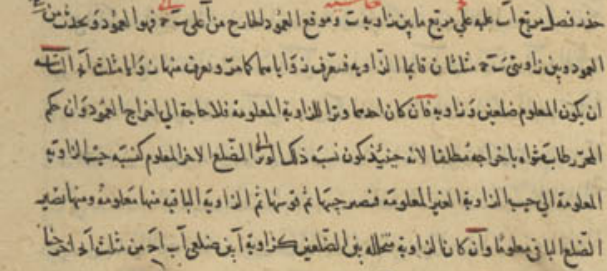 جذر فضل مربع اب عليه على مربع ما بين زاوية ب وموقع العمود الخارج من اعلى ب ح فهو العمود ويحدث من
العمود وبين زاويتى ب ح مثلثان قايما الزاويه فتعرف زوايا هما كما مر وتعرف منها زوايا مثلث ا
ان يكون المعلوم ضلعين وزاوية فان كان احدهما وترا للزاوية المعلومة فلا حاجة الى اخراج العمود وان حكم
المحرر طاب ثراه باخراجه مطلقا لانه حينئذ يكون نسبة ذلك الوتر الى الضلع الاخر المعلوم كنسبة جيب الزاوية
المعلومة الى جيب الزاوية الغير المعلومة فنصير جيبها ثم قوسها ثم الزاوية الباقية منها معلومة ومنها نصير
الضلع الباقى معلوما وان كانت الزاوية متخلله بين الضلعين كزاوية ا بين ضلعى اب ا من مثلث ا اخرجنا